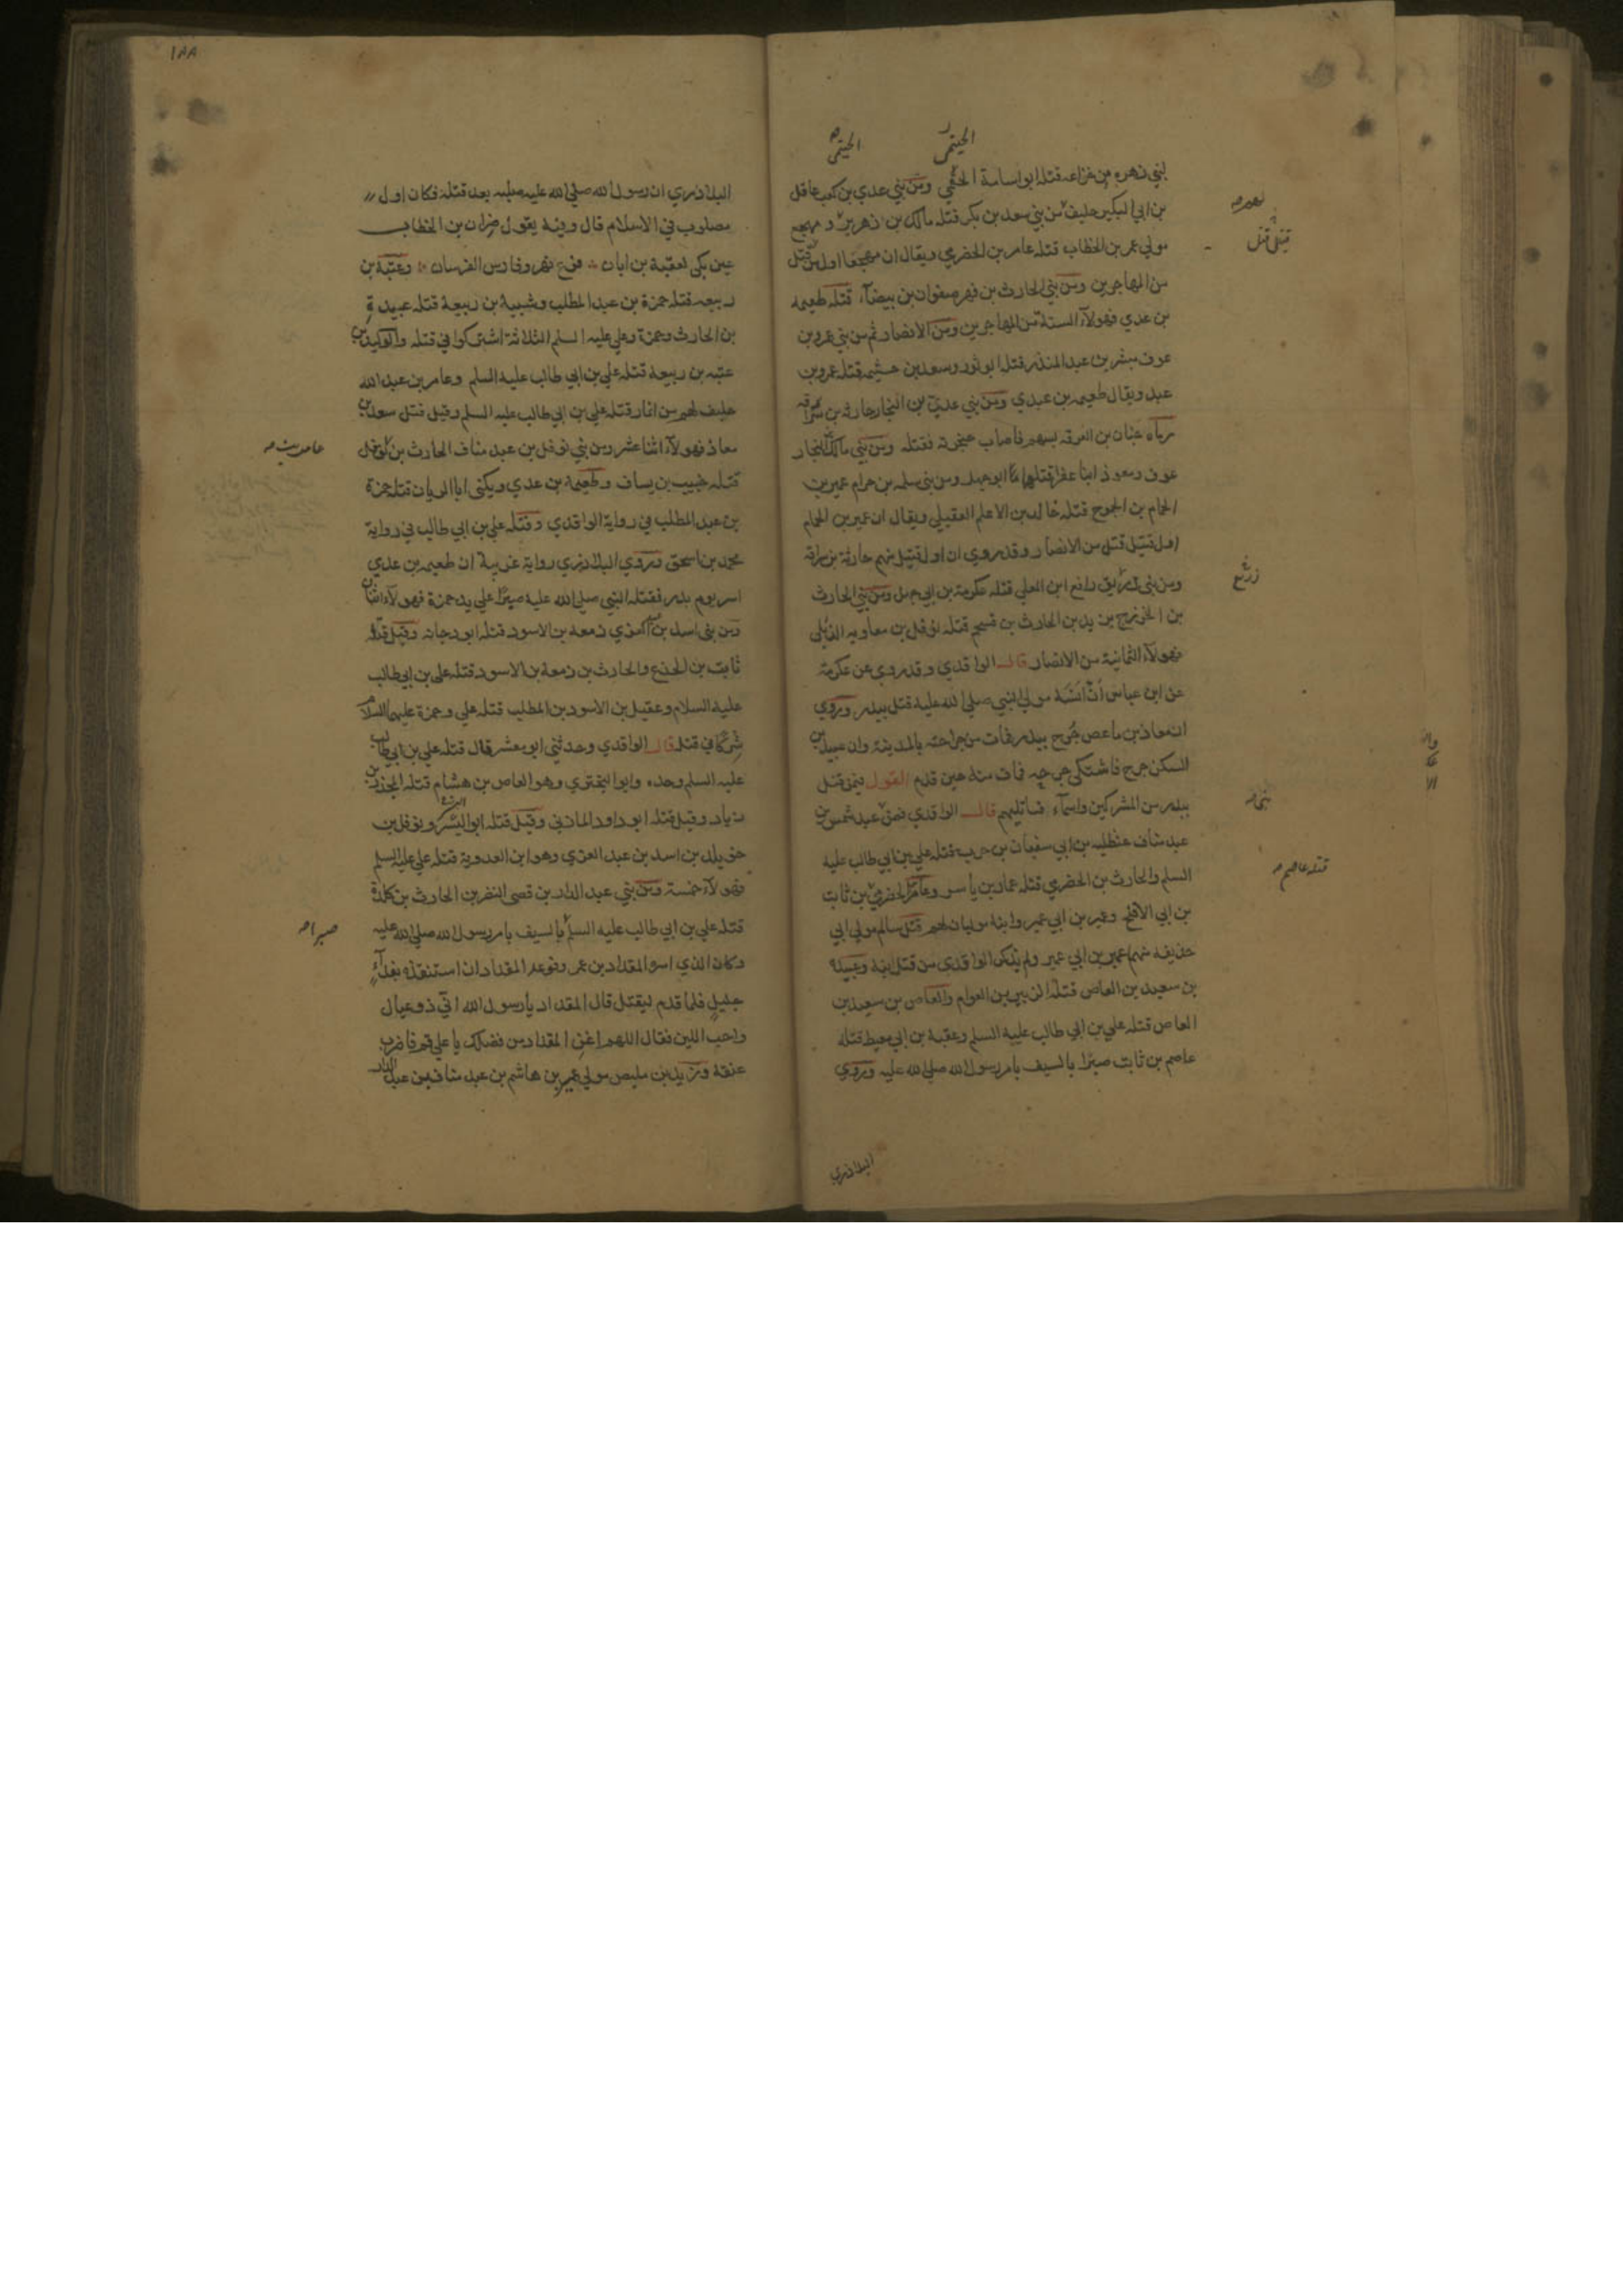 الجشمي
لبني زهرة من خزاعة قتله ابو اسامة الجشمي ومن بني عدي بن كعب عاقل
بن ابي البكير حليف من بني سعد بن بكر قتله مالك بن زهير و مهجع
مولي عمر بن الخطاب قتله عامر بن الحضرمي ويقال ان مهجعا اول من قتل
من المهاجرين ومن بني الحارث بن فهر صفوان بن بيضآء قتله طعيمه
بن عدي فهولآء الستة من المهاجرين ومن الانصار ثم من بني عمرو بن
عوف مبشر بن عبد المنذر قتله ابو ثور وسعد بن خيثمه قتله عمرو بن
عبد ويقال طعيمه بن عدي ومن بني عدي بن النجار حارثه بن سراقه
رماه حنان بن العرقه بسهم فاصاب حنجرته فقتله ومن بني مالك بن النجار
عوف ومعوذ ابنا عفرا قتلهما ابو جهل ومن بني سلمه بن حرام عمير بن
الحمام بن الجموح قتله خالد بن الاعلم العقيلي ويقال ان عمير بن الحمام
اول قتيل قتل من الانصار وقد روي ان اول قتيل منهم حارثة بن سراقة
ومن بني زريق رافع ابن المعلي قتله عكرمة بن ابي جهل ومن بني الحارث
بن الخزرج يزيد بن الحارث بن فسحم قتله نوفل بن معاويه الديلي
فهولآء الثمانية من الانصار قال الواقدي وقد روي عن عكرمة
عن ابن عباس أن أنسة مولي النبي صلي الله عليه قتل ببدر وروي
ان معاذ بن ماعص جُرح ببدر فمات من جراحته بالمدينة وان عبيد بن
السكن جرح فاشتكي جرحه فمات منه حين قدم القول فيمن قتل
ببدر من المشركين واسمآء قاتليهم قال الواقدي فمن عبد شمس بن
عبد مناف حنظلة بن ابي سفيان بن حرب قتله علي بن ابي طالب عليه
السلم والحارث بن الحضرمي قتله عمار بن ياسر وعامر الحضرمي بن ثابت
بن ابي الاقلح وعمير بن ابي عمير وابنه موليان لهم قتل سالم مولي ابي
حذيفه منهم عمير بن ابي عمير ولم يذكر الواقدي من قتل ابنه وعبيدة
بن سعيد بن العاص قتله الزبير بن العوام والعاص بن سعيد بن
العاص قتله علي بن ابي طالب عليه السلم وعقبة بن ابي معيط قتله
عاصم بن ثابت صبرًا بالسيف بامر رسول الله صلي الله عليه وروي
البلاذري
قتيل قتل
قتله عاصم
١٨٨
البلاذري ان رسول الله صلي الله عليه صلبه بعد قتله فكان اول
مصلوب في الاسلام قال وفيه يقول ضرار بن الخطاب
عين بكي لعقبة بن ابان فرع فهر وفارس الفرسان وعتبة بن
ربيعه قتله حمزة بن عبد المطلب وشيبة بن ربيعة قتله عبيدة
بن الحارث وحمزة وعلي عليه السلم الثلاثة اشتركوا في قتله والوليد بن
عتبه بن ربيعة قتله علي بن ابي طالب عليه السلم وعامر بن عبد الله
حليف لهم من انمار قتله علي بن ابي طالب عليه السلم وقيل قتل سعد بن
معاذ فهولآء اثنا عشر ومن بني نوفل بن عبد مناف الحارث بن نوفل
قتله خبيب بن يساف وطعيمة بن عدي ويكني ابا الريان قتله حمزة
بن عبد المطلب في رواية الواقدي وقتله علي بن ابي طالب في رواية
محمد بن اسحق وروي البلاذري رواية غريبة ان طعيمه بن عدي
اسر يوم بدر فقتله النبي صلي الله عليه صبرًا علي يد حمزة فهولآء اثنان
ومن بني اسد بن العزي زمعه بن الاسود قتله ابو دجانه وقيل قتله
ثابت بن الجذع والحارث بن زمعة بن الاسود قتله علي بن ابي طالب
عليه السلام وعقيل بن الاسود بن المطلب قتله علي وحمزة عليهما السلام
شركا في قتله قال الواقدي وحدثني ابو معشر قال قتله علي بن ابي طالب
عليه السلم وحده وابو البختري وهو العاص بن هشام قتله المجذر بن
زياد وقيل قتله ابو داود المازني وقيل قتله ابو اليسر ونوفل بن
خويلد بن اسد بن عبد العزي وهو ابن العدوية قتله علي عليه السلم
فهولآء خمسة ومن بني عبد الدار بن قصي النضر بن الحارث بن كلدة
قتله علي بن ابي طالب عليه السلم بالسيف بامر رسول الله صلي الله عليه
وكان الذي اسره المقداد بن عمر فوعد المقداد ان استنقذه بفدآء
جليل فلما قدم ليقتل قال المقداد يا رسول الله اني ذو عيال
واحب اللبن فقال اللهم اغن المقداد من فضلك يا علي قم فاضرب
عنقه وزيد بن مليص مولي عمير بن هاشم بن عبد مناف بن عبد الدار
صبرا